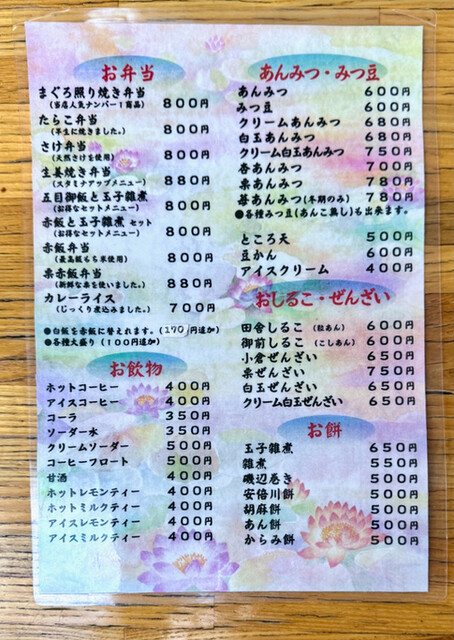 お弁当
まぐろ照り焼き弁当
(当店人気ナンバー1商品) 800円
たらこ弁当
(半生に焼きました。) 800円
さけ弁当
(天然さけを使用) 800円
生姜焼き弁当
(スタミナアップメニュー) 880円
五目御飯と玉子雑煮
(お得なセットメニュー) 800円
赤飯と玉子雑煮 セット
(お得なセットメニュー) 800円
赤飯弁当
(最高級もち米使用) 800円
栗赤飯弁当
(新鮮な栗を使いました。) 880円
カレーライス
(じっくり煮込みました。) 700円
●白飯を赤飯に替えれます。(170円追加)
●各種大盛り (100円追加)
お飲物
ホットコーヒー 400円
アイスコーヒー 400円
コーラ 350円
ソーダー水 350円
クリームソーダー 500円
コーヒーフロート 500円
甘酒 400円
ホットレモンティー 400円
ホットミルクティー 400円
アイスレモンティー 400円
アイスミルクティー 400円
あんみつ・みつ豆
あんみつ 600円
みつ豆 600円
クリームあんみつ 680円
白玉あんみつ 680円
クリーム白玉あんみつ 750円
杏あんみつ 700円
栗あんみつ 780円
苺あんみつ(冬期のみ) 780円
●各種みつ豆(あんこ無し)も出来ます。
ところ天 500円
豆かん 600円
アイスクリーム 400円
おしるこ・ぜんざい
田舎しるこ (粒あん) 600円
御前しるこ (こしあん) 600円
小倉ぜんざい 650円
栗ぜんざい 750円
白玉ぜんざい 650円
クリーム白玉ぜんざい 650円
お餅
玉子雑煮 650円
雑煮 550円
磯辺巻き 500円
安倍川餅 500円
胡麻餅 500円
あん餅 500円
からみ餅 500円